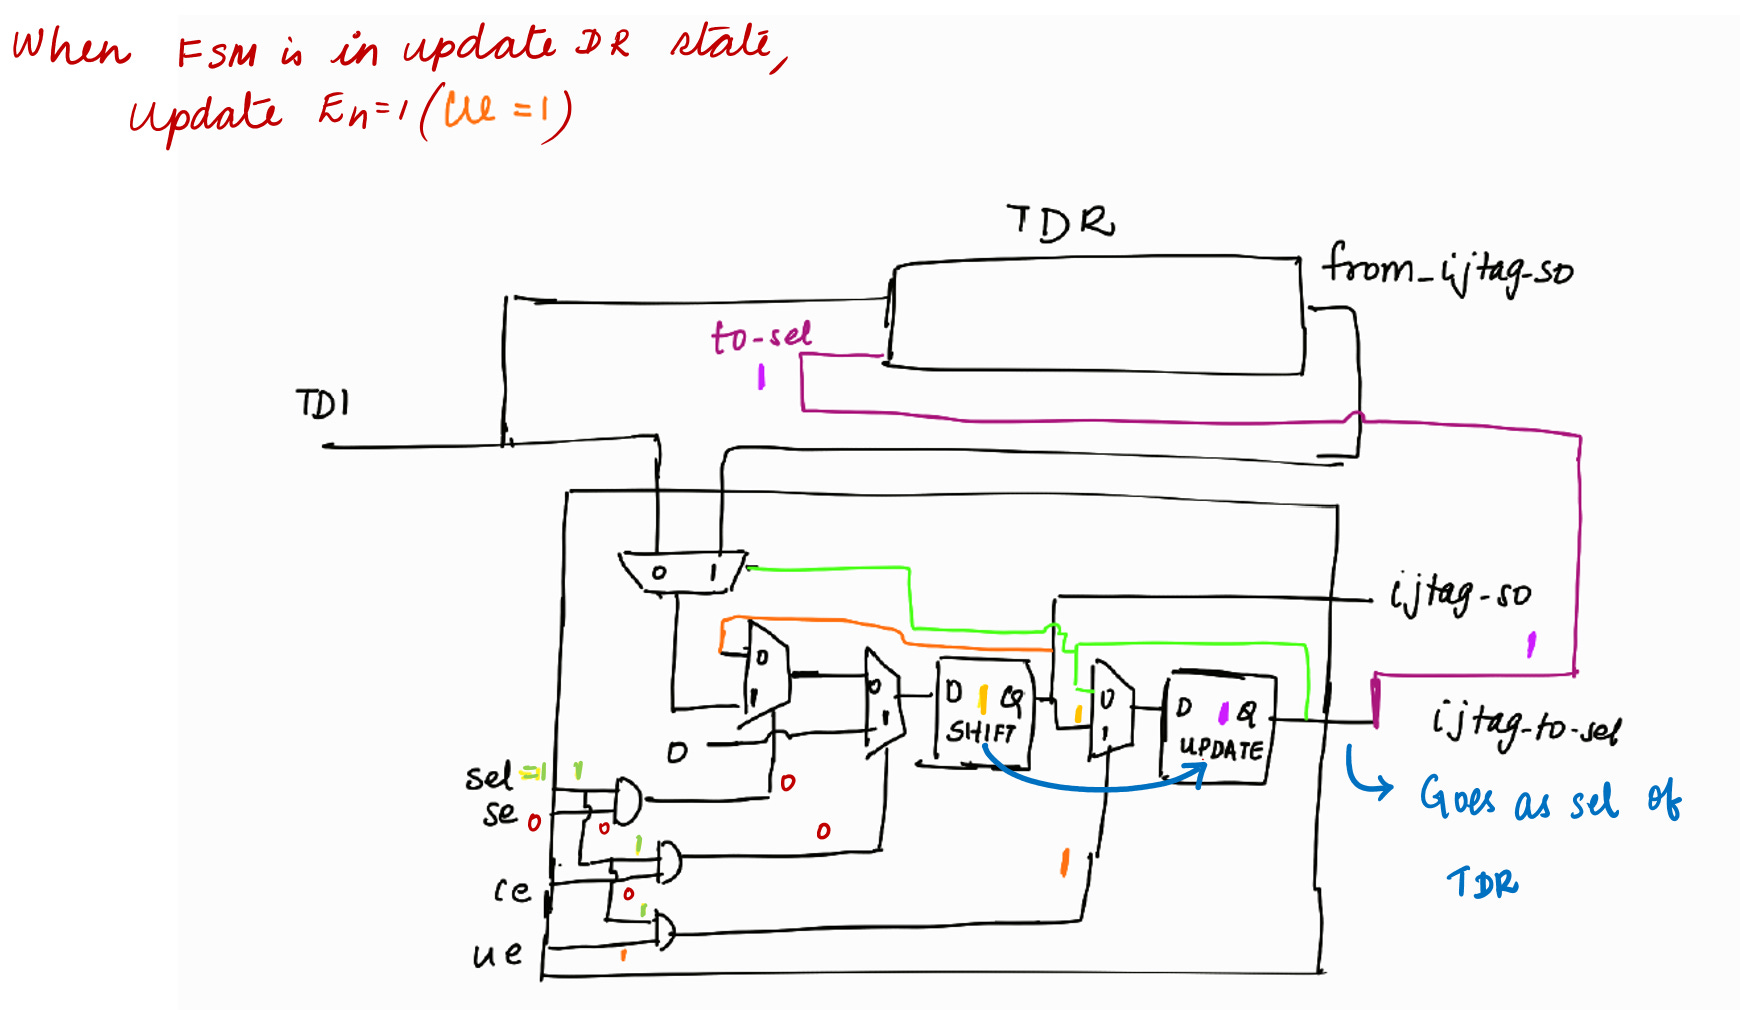 When FSM is in update DR state,
Update En=1 (ue =1)
TDR
from_ijtag-so
to-sel
1
TDI
0 1
ijtag-so
1
0
1
0
1
D 1 Q
SHIFT
1
0
1
D 1 Q
UPDATE
ijtag-to-sel
0
sel =1 1
se 0 0
0
0
1
ce
0
1
1
ue
1
Goes as sel of
TDR